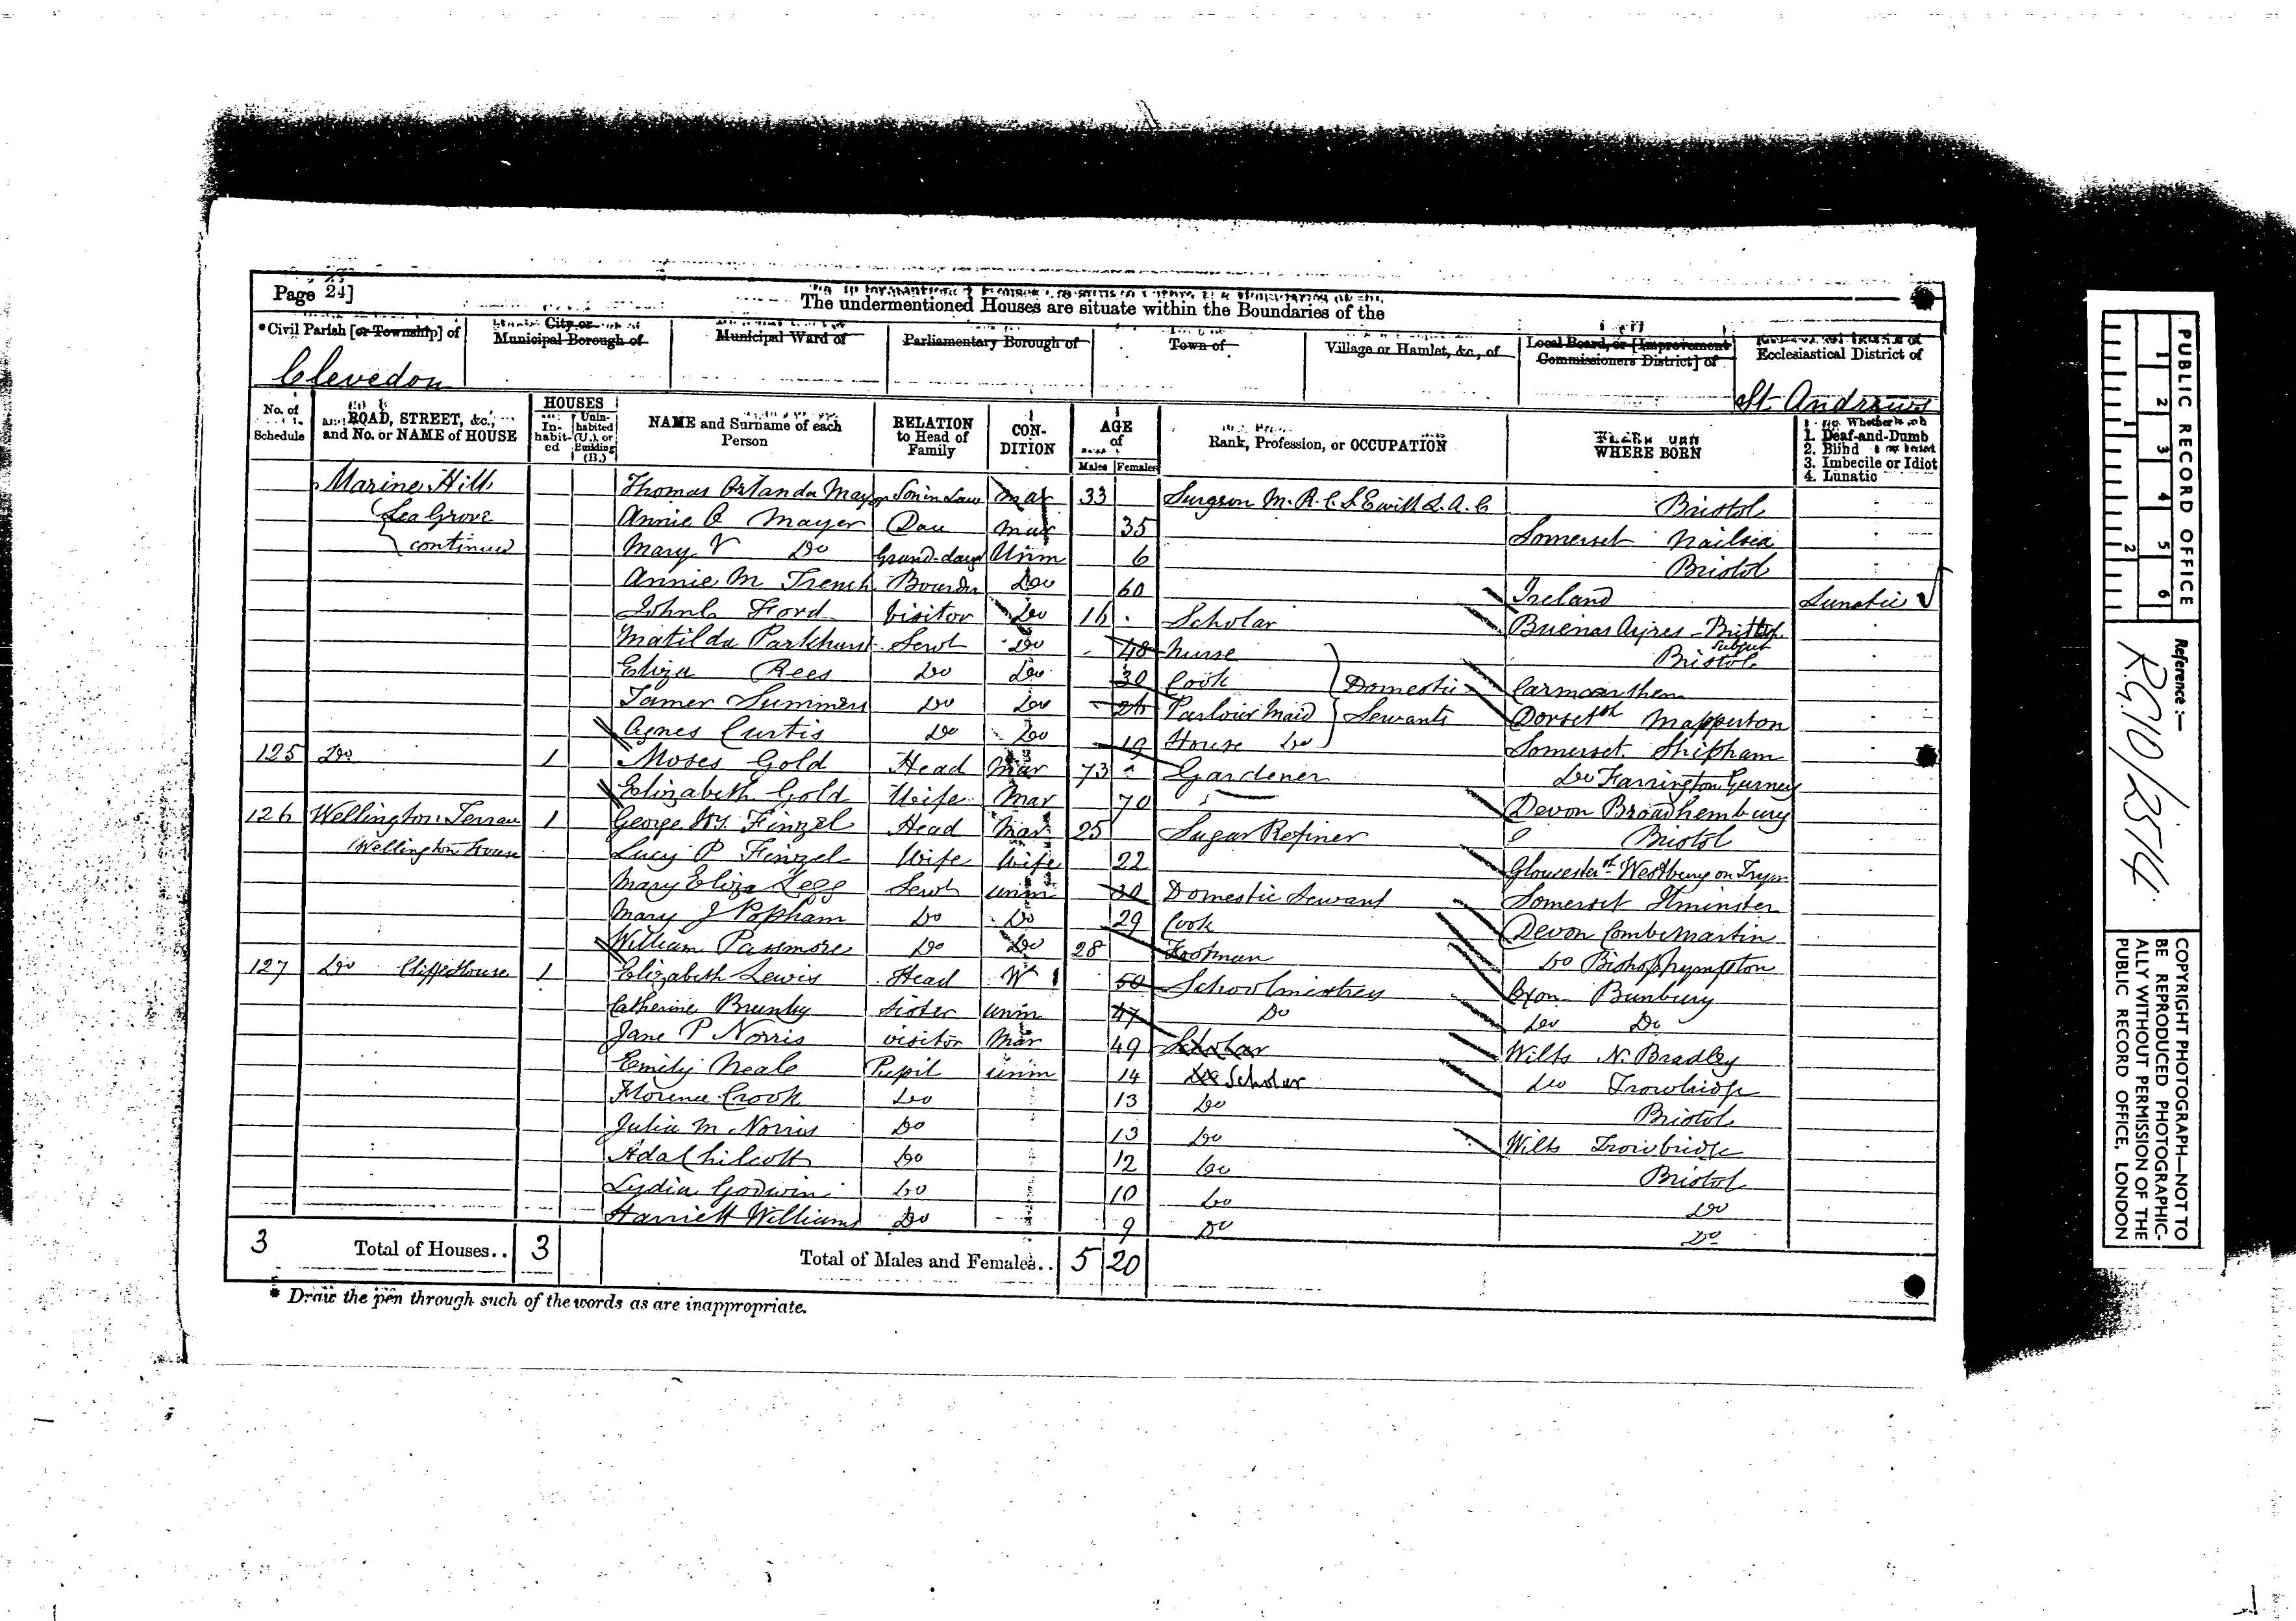 Page 24]
The undermentioned Houses are situate within the Boundaries of the
*Civil Parish [or Township] of City or Municipal Borough of Municipal Ward of Parliamentary Borough of Town of Village or Hamlet, &c., of Local Board, or [Improvement Commissioners District] of Ecclesiastical District of
Clevedon St. Andrews
No. of Schedule ROAD, STREET, &c., and No. or NAME of HOUSE HOUSES In-habit-ed Unin-habited (U.), or Building (B.) NAME and Surname of each Person RELATION to Head of Family CON-DITION AGE of Males Females Rank, Profession, or OCCUPATION WHERE BORN Whether 1. Deaf-and-Dumb 2. Blind 3. Imbecile or Idiot 4. Lunatic
Marine Hill Thomas Orlando Mayer Son in Law Mar 33 Surgeon M.R.C.S. L.A.C Bristol
Sea Grove Annie Mayer Dau Mar 35 Somerset Nailsea
continued Mary V Do Grand-daur Unm 6 Bristol
Annie M Trench Boarder Do 60 Ireland Lunatic
John C Ford Visitor Do 16 Scholar Buenos Ayres - British Subject
Matilda Parkhurst Servt Do 48 Nurse Bristol
Eliza Rees Do Do 30 Cook Domestic Carmarthen
Tamer Summers Do Do 26 Parlour Maid Servants Dorset Mapperton
Agnes Curtis Do Do 19 House Do Somerset Shipham
125 Do 1 Moses Gold Head Mar 73 Gardener Do Farrington Gurney
Elizabeth Gold Wife Mar 70 Devon Broadhembury
126 Wellington Terrace 1 George Wm Finzel Head Mar 25 Sugar Refiner Bristol
Wellington House Lucy P Finzel Wife Wife 22 Gloucester Westbury on Trym
Mary Eliza Legg Servt Unm 30 Domestic Servant Somerset Ilminster
Mary J Popham Do Do 29 Cook Devon Combe Martin
William Passmore Do Do 28 Footman Do Bishopnympton
127 Do Cliffe House 1 Elizabeth Lewis Head W 50 Schoolmistress Oxon Bunbury
Catherine Brunby Sister Unm 47 Do Do Do
Jane P Norris Visitor Mar 49 Scholar Wilts N. Bradley
Emily Neale Pupil Unm 14 Do Scholar Do Trowbridge
Florence Crook Do 13 Do Bristol
Julia M Norris Do 13 Do Wilts Trowbridge
Ada Chilcott Do 12 Do Bristol
Lydia Godwin Do 10 Do Do
Harriett Williams Do 9 Do Do
3 Total of Houses.. 3 Total of Males and Females.. 5 20
* Draw the pen through such of the words as are inappropriate.
PUBLIC RECORD OFFICE
1 2 3 4 5 6
1 2
Reference:—
R.G. 10/2514
COPYRIGHT PHOTOGRAPH—NOT TO BE REPRODUCED PHOTOGRAPHICALLY WITHOUT PERMISSION OF THE PUBLIC RECORD OFFICE, LONDON